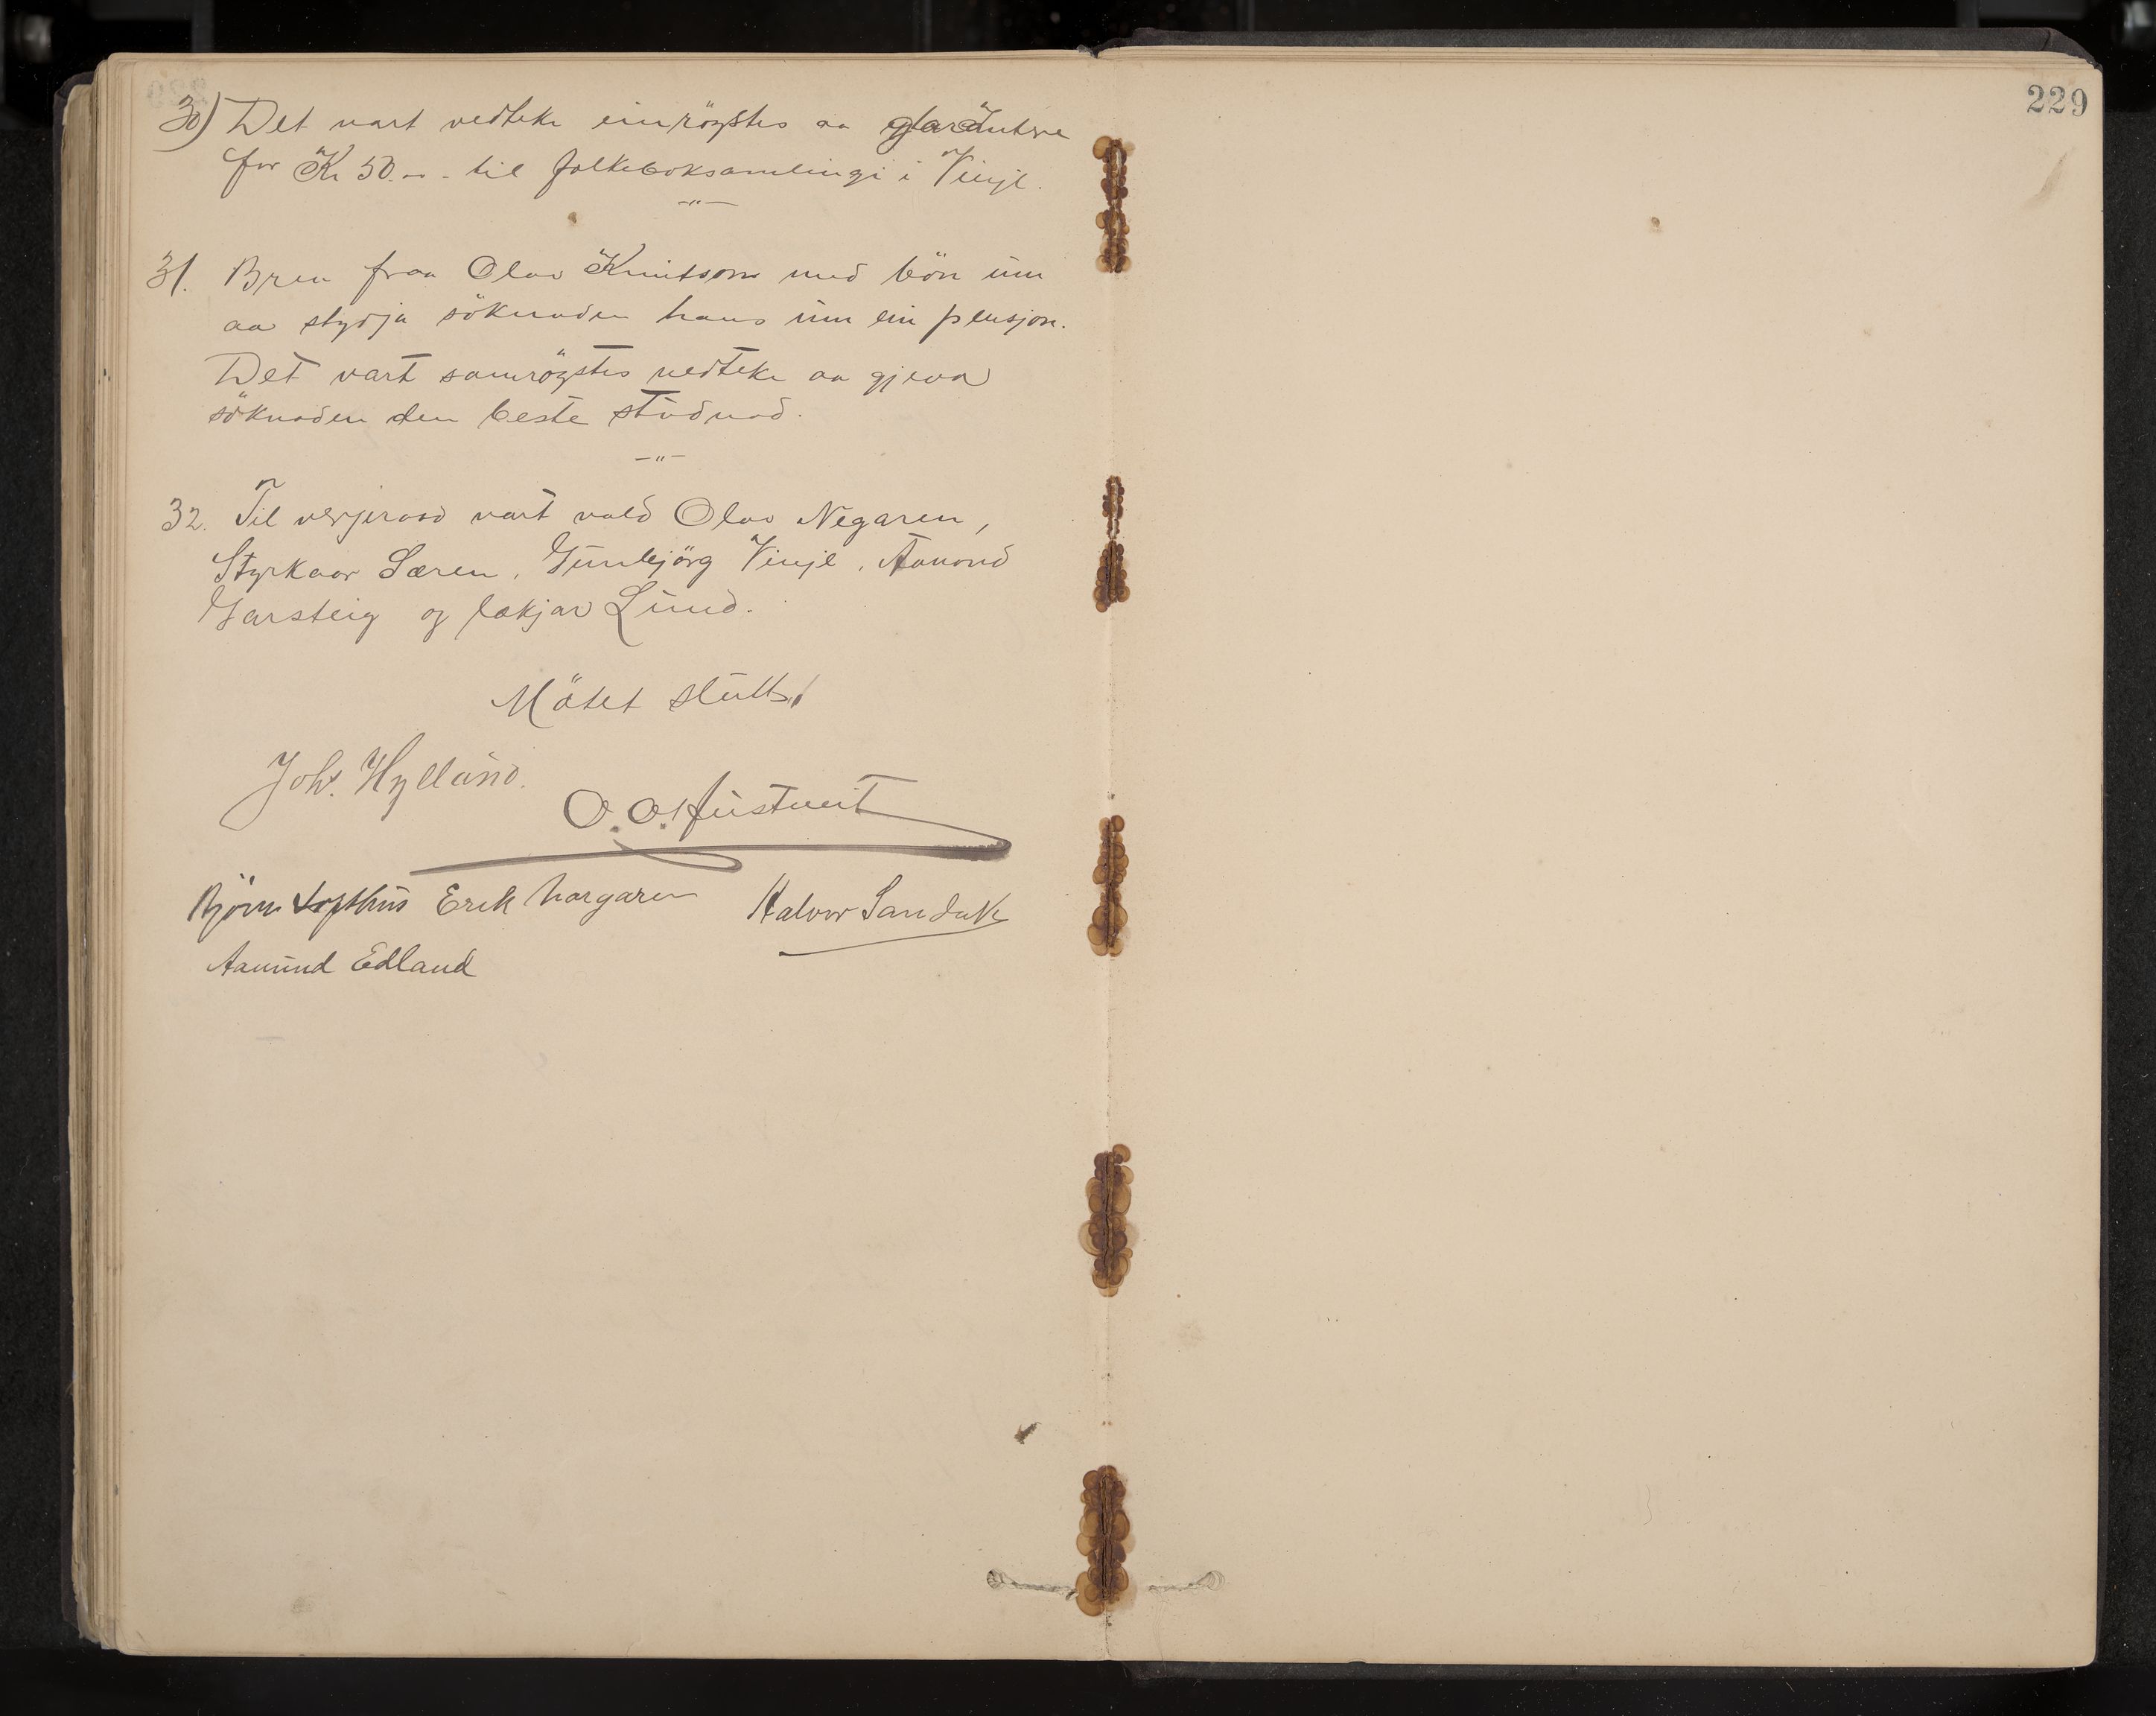 30) Det vart vedteke einröystes aa garantere
for Kr 50.— - til folkeboksamlingi i Vinje.
—"—
31. Brev fraa Olav Knutson med bön um
aa stydja söknaden hans um ein pensjon.
Det vart samröystes vedteke aa gjeva
söknaden den beste studnad.
—"—
32. Til verjeraad vart vald Olav Negaren,
Styrkaar Særen, Gunbjörg Vinje, Aamund
Garsteig og lækjar Lund.
Mötet slutt.
Joh. Hylland.
O. O.
Björn Lofthus Erik Hargaren Halvor Sandok
Aamund Edland
229